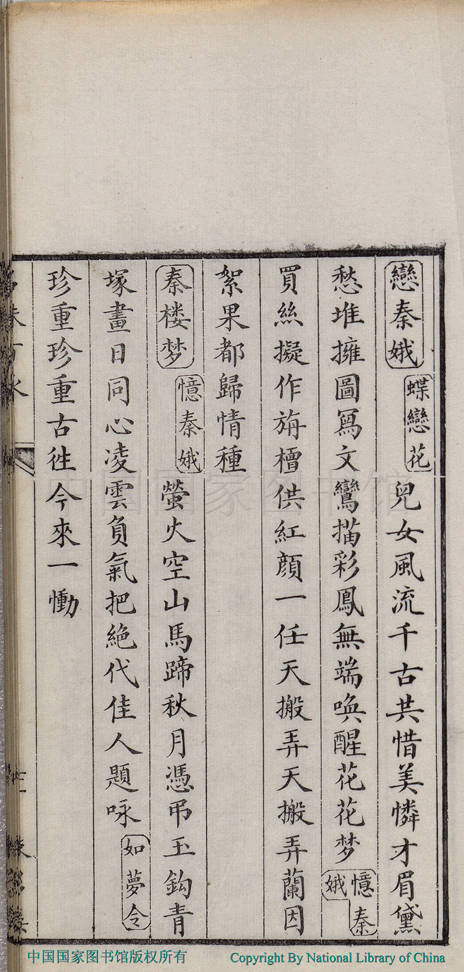 戀秦娥 蝶戀花 兒女風流千古共惜美憐才眉黛
愁堆擁圖寫文鸞描彩鳳無端喚醒花花梦 憶秦娥
買絲擬作旃檀供紅顏一任天搬弄天搬弄蘭因
絮果都歸情種
秦楼梦 憶秦娥 螢火空山馬蹄秋月憑吊玉鈎青
塚畫日同心凌雲負氣把絕代佳人題咏 如夢令
珍重珍重古徃今來一慟
中国国家图书馆
中国国家图书馆版权所有 Copyright By National Library of China